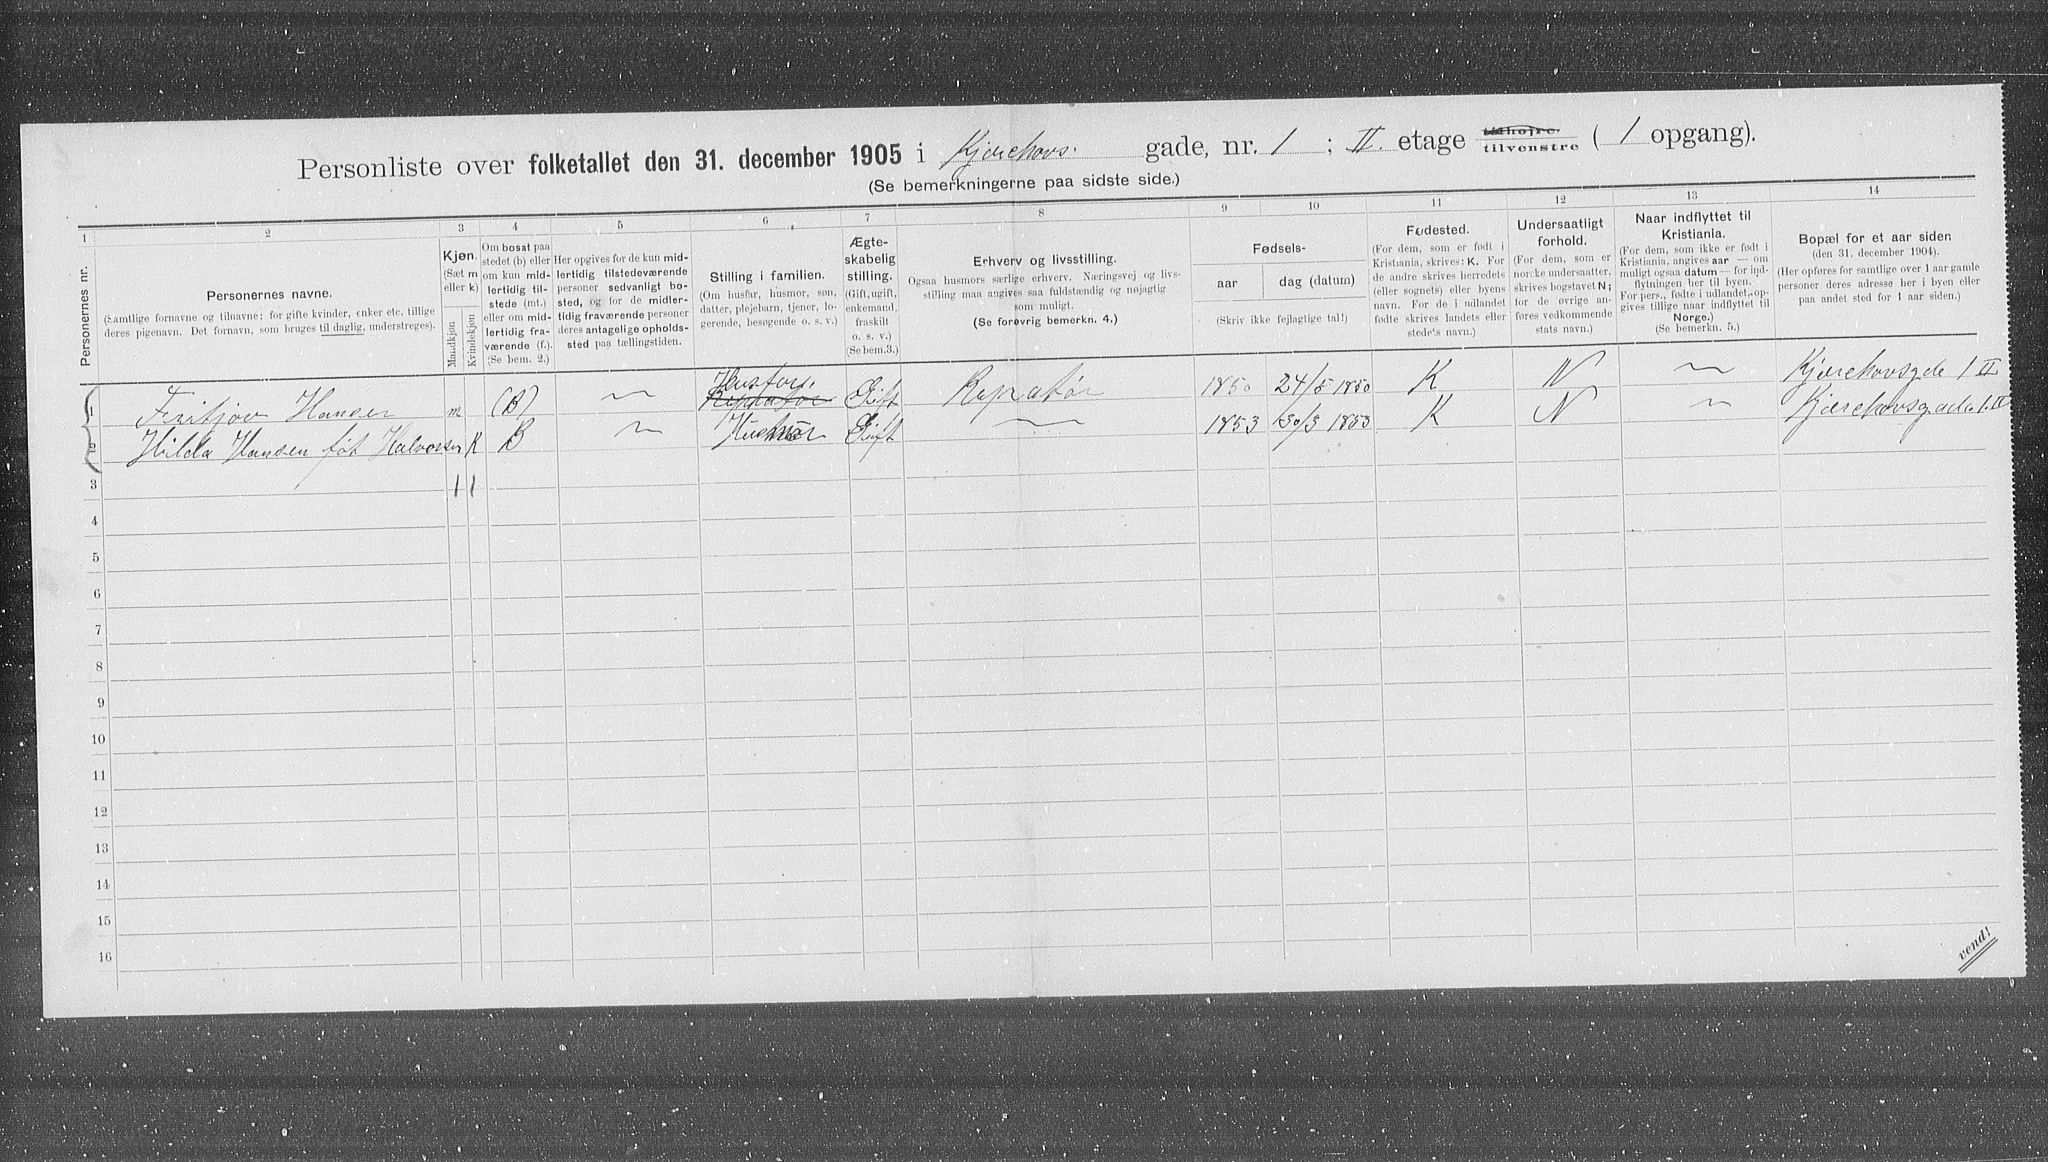 Personliste over folketallet den 31. december 1905 i Kjærehovs. gade, nr. 1 ; II. etage tilhøjre tilvenstre ( 1 opgang).
(Se bemerkningerne paa sidste side.)
1 2 3 4 5 6 7 8 9 10 11 12 13 14
Personernes nr.
Personernes navne.
(Samtlige fornavne og tilnavne; for gifte kvinder, enker etc. tillige
deres pigenavn. Det fornavn, som bruges til daglig, understreges).
Kjøn.
(Sæt m
eller k)
Mandkjøn
Kvindekjøn
Om bosat paa
stedet (b) eller
om kun mid-
lertidig til-
stede (mt.)
eller om mid-
lertidig fra-
værende (f.).
(Se bem. 2.)
Her opgives for de kun mid-
lertidig tilstedeværende
personer sedvanligt bo-
sted, og for de midler-
tidig fraværende personer
deres antagelige opholds-
sted paa tællingstiden.
Stilling i familien.
(Om husfar, husmor, søn,
datter, plejebarn, tjener, lo-
gerende, besøgende o. s. v.)
Ægte-
skabelig
stilling.
(Gift, ugift,
enkemand,
fraskilt
o. s. v.)
(Se bem.3.)
Erhverv og livsstilling.
Ogsaa husmors særlige erhverv. Næringsvej og livs-
stilling maa angives saa fuldstændig og nøjagtig
som muligt.
(Se forøvrig bemerkn. 4.)
Fødsels-
aar
dag (datum)
(Skriv ikke fejlagtige tal!)
Fødested.
(For dem, som er født i
Kristiania, skrives: K. For
de andre skrives herredets
(eller sognets) eller byens
navn. For de i udlandet
fødte skrives landets eller
stedets navn.)
Undersaatligt
forhold.
(For dem, som er
norske undersaatter,
skrives bogstavet N;
for de øvrige an-
føres vedkommende
stats navn.)
Naar indflyttet til
Kristiania.
(For dem, som ikke er født i
Kristiania, angives aar — om
muligt ogsaa datum — for ind-
flytningen her til byen.
For pers., fødte i udlandet, op-
gives tillige naar indflyttet til
Norge.)
(Se bemerkn. 5.)
Bopæl for et aar siden
(den 31. december 1904).
(Her opføres for samtlige over 1 aar gamle
personer deres adresse her i byen eller
paa andet sted for 1 aar siden.)
Husfar.
1 Fritjov Hansen m (B) — Repratør Gift Repratør 1850 24/5 1850 K N — Kjærehovsgde 1 II
2 Hilda Hansen føt Halvorsen K B — Husmor Gift — 1853 30/3 1853 K N — Kjærehovsgade 1. II
3 1 1
4
5
6
7
8
9
10
11
12
13
14
15
16
vend!